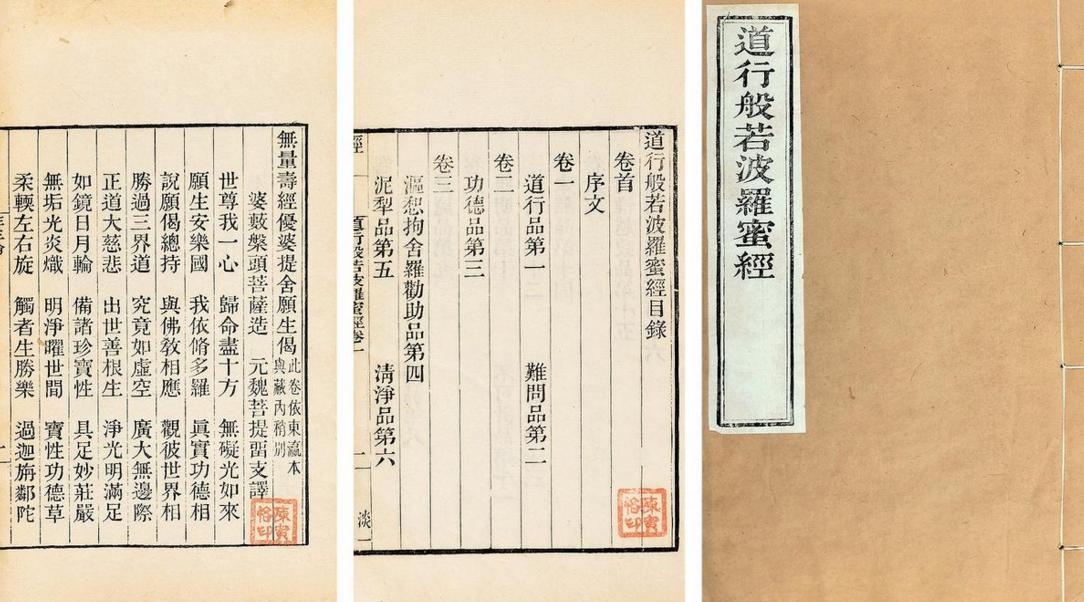 道行般若波羅蜜經
道行般若波羅蜜經目錄
卷首
序文
卷一
道行品第一 難問品第二
卷二
功德品第三
卷三
漚惒拘舍羅勸助品第四
泥犁品第五 清淨品第六
經 道行般若波羅蜜經卷一 一 淡一
陳寅恪印
無量壽經優婆提舍願生偈 此卷依東瀛本與藏內稍別
婆藪槃頭菩薩造 元魏菩提畱支譯
世尊我一心 歸命盡十方 無礙光如來
願生安樂國 我依脩多羅 眞實功德相
說願偈總持 與佛敎相應 觀彼世界相
勝過三界道 究竟如虛空 廣大無邊際
正道大慈悲 出世善根生 淨光明滿足
如鏡日月輪 備諸珍寶性 具足妙莊嚴
無垢光炎熾 明淨曜世間 寶性功德草
柔輭左右旋 觸者生勝樂 過迦旃鄰陀
陳寅恪印